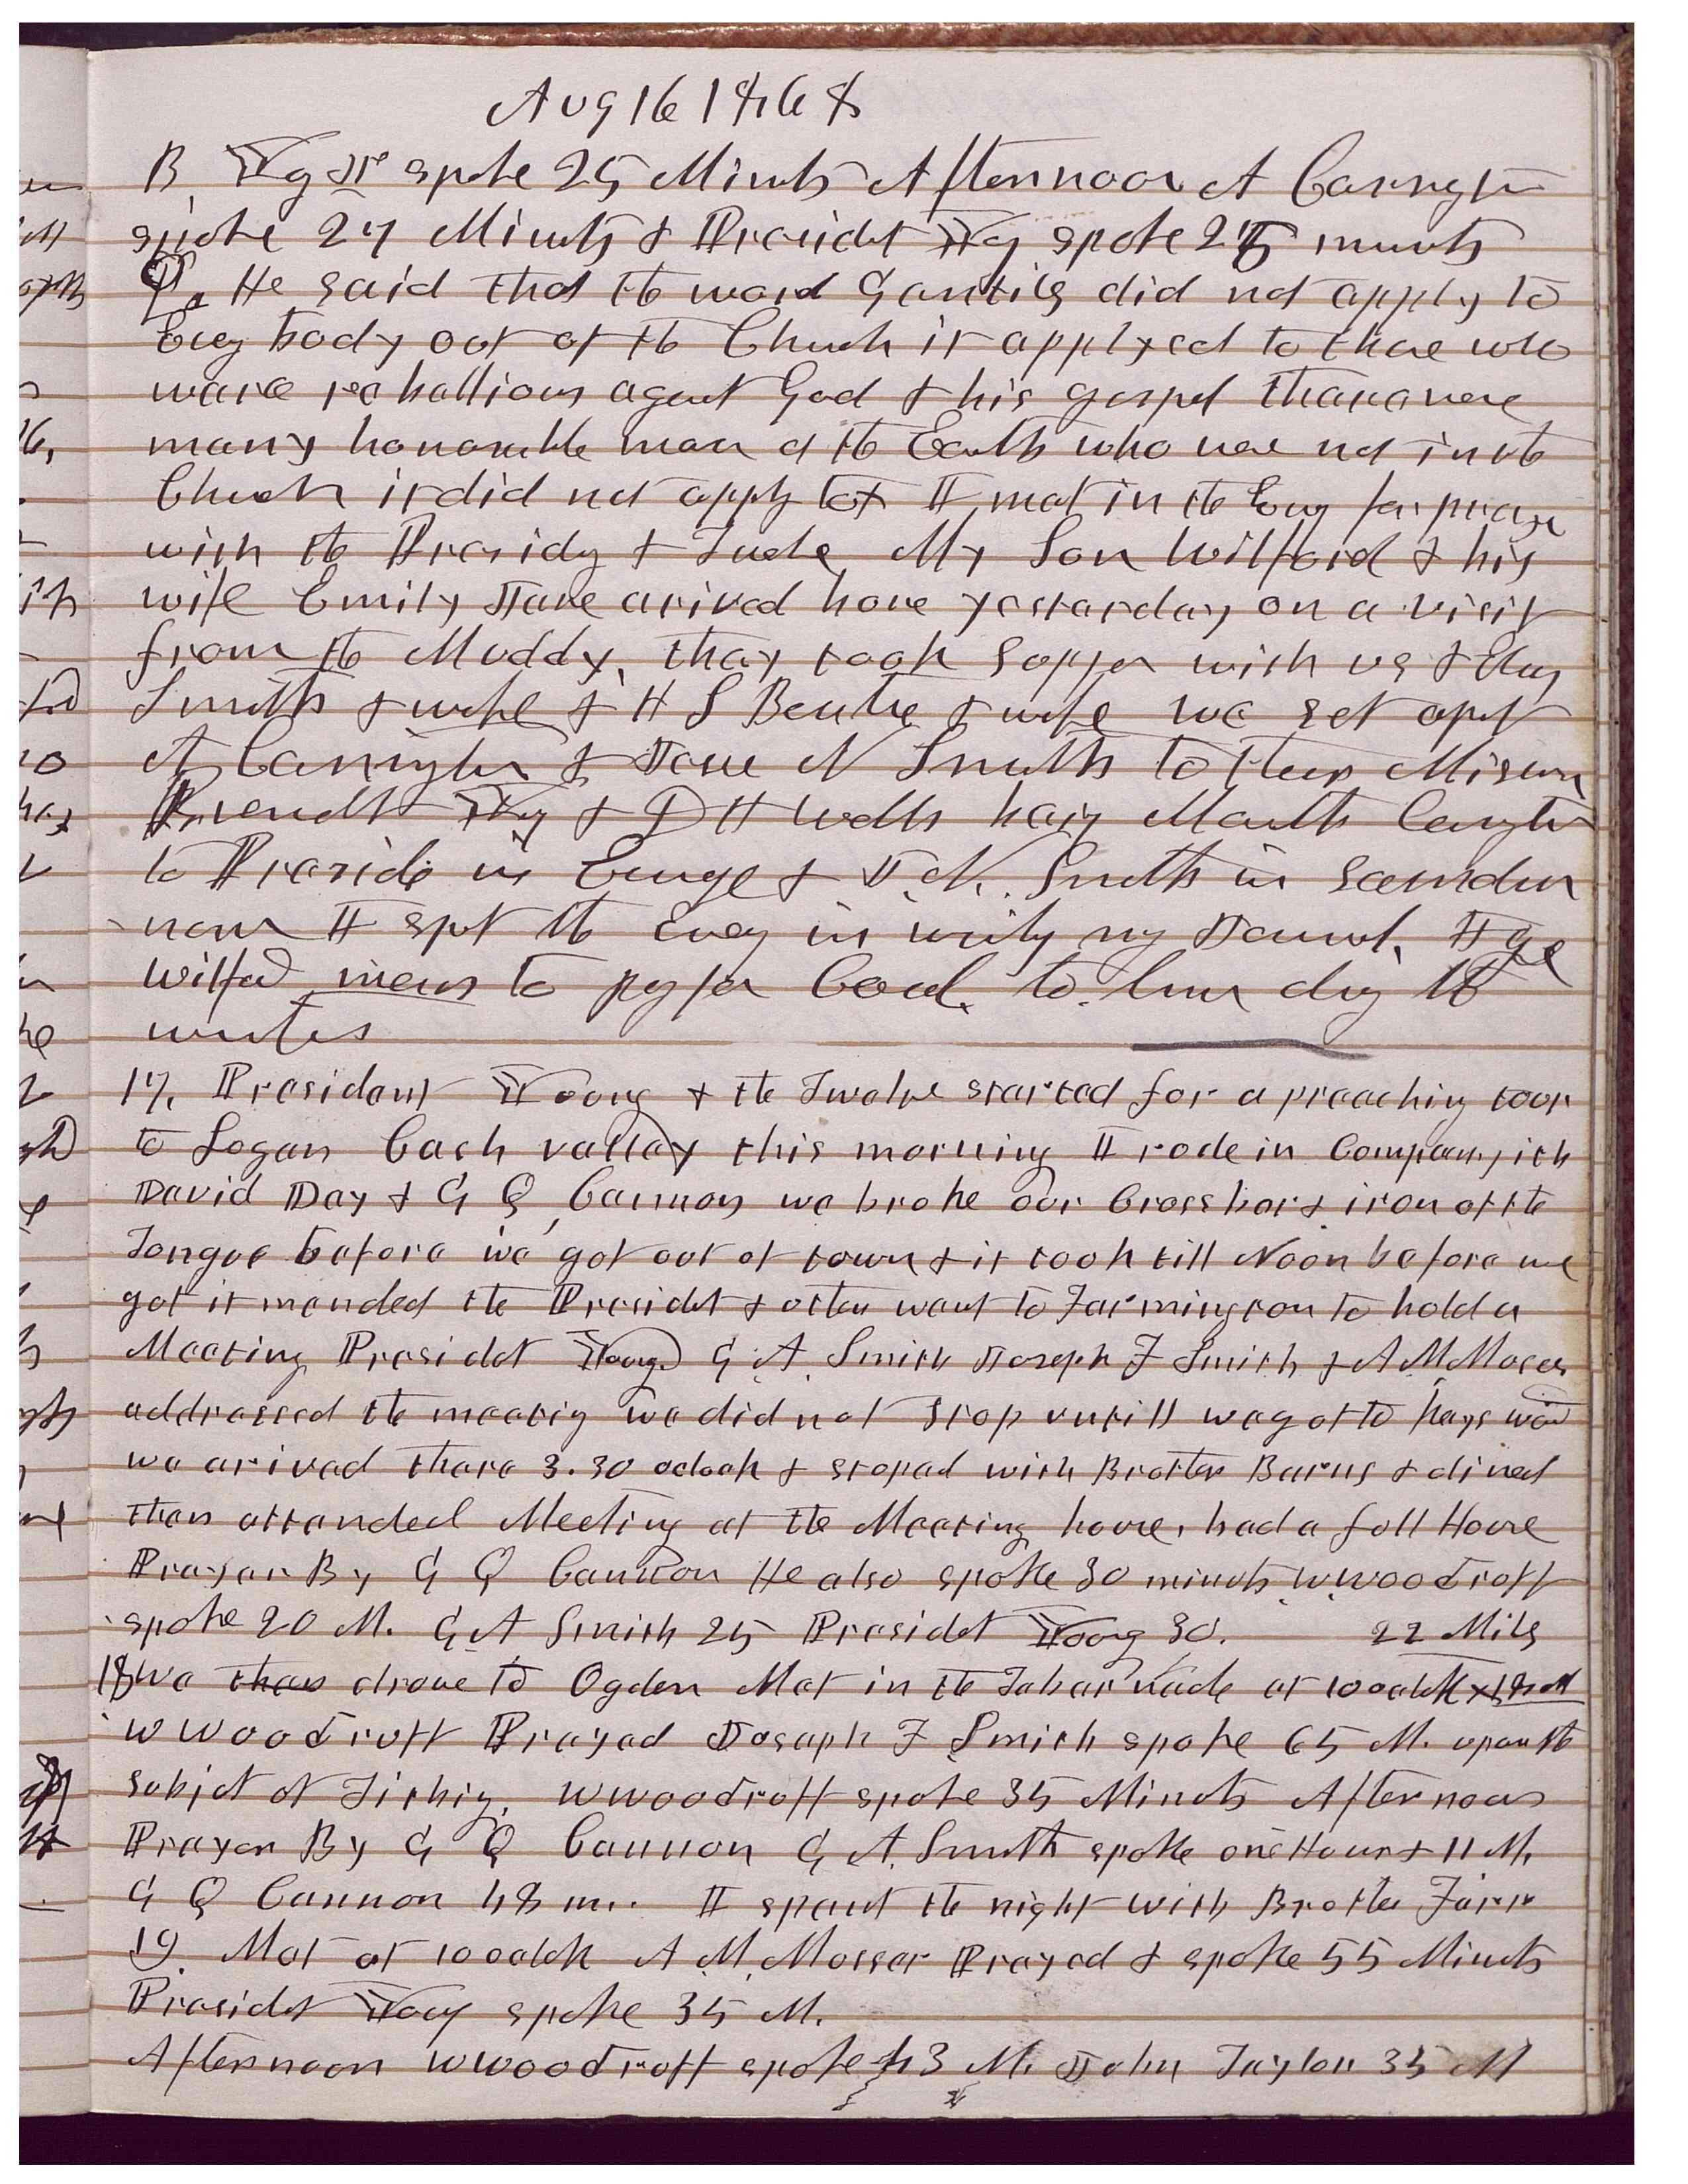 Aug 16 1868
B Yg Jr spoke 25 Minuts Afternoon A Carrington
spoke 27 Minuts & Presidet Yg spoke 25 minuts
He said that the word Gentiles did not apply to
Evry body out of the Church it applyed to those who
ware rebellious against God & his gospel thare were
many honorable men of the Earth who were not in the
Church it did not apply to I met in the Evng for prayer
with the Presidy & Twelve My Son Wilford & his
wife Emily Jane arived home yesterday on a visit
from the Muddy, they took supper with us &
Smith & wife & H S Beatie & wife we set apart
A Carrington & Jesse N Smith to their Mission
Presidet Yg & D H Wells Carrington
to Preside in Europe & J. N. Smith in Scandin
navia I spet the Eveng in writing my Journal. I gave
Wilford means to pay for Cood. to
winter
17, President Young & the Twelve started for a preaching tour
to Logan Cach valley this morning I rode in Company with
David Day & G Q Cannon we broke our Cross bar & iron of the
Tongue before we got out of town & it took till Noon before we
got it mended the Presidet & others went to Farmington to hold a
Meeting Presidet Young G. A. Smith Joseph F Smith & A M Moser
addressed the meeting we did not stop untill we got to Kays ward
we arived there 3.30 oclock & stoped with Brother Barns & dined
then attended Meeting at the Meeting house, had a full House
Prayer By G Q Cannon He also spoke 30 minuts W Woodruff
spoke 20 M. G A Smith 25 Presidet Young 30. 22 Miles
18 We then drove to Ogden Met in the Tabarnacle at 10 oclok 18 M
W Woodruff Prayed Joseph F Smith spoke 65 M. upon the
subjet of Tithing. W Woodruff spoke 35 Minuts Afternoon
Prayer By G Q Cannon G A. Smith spoke one Hour & 11 M.
G Q Cannon 48 m.. I spent the night with Brother Farr
19. Met at 10 oclok A. M. Mosser Prayed & spoke 55 Minuts
Presidet Young spoke 35 M.
Afternoon W Woodruff spoke 43 M. John Taylor 35 M